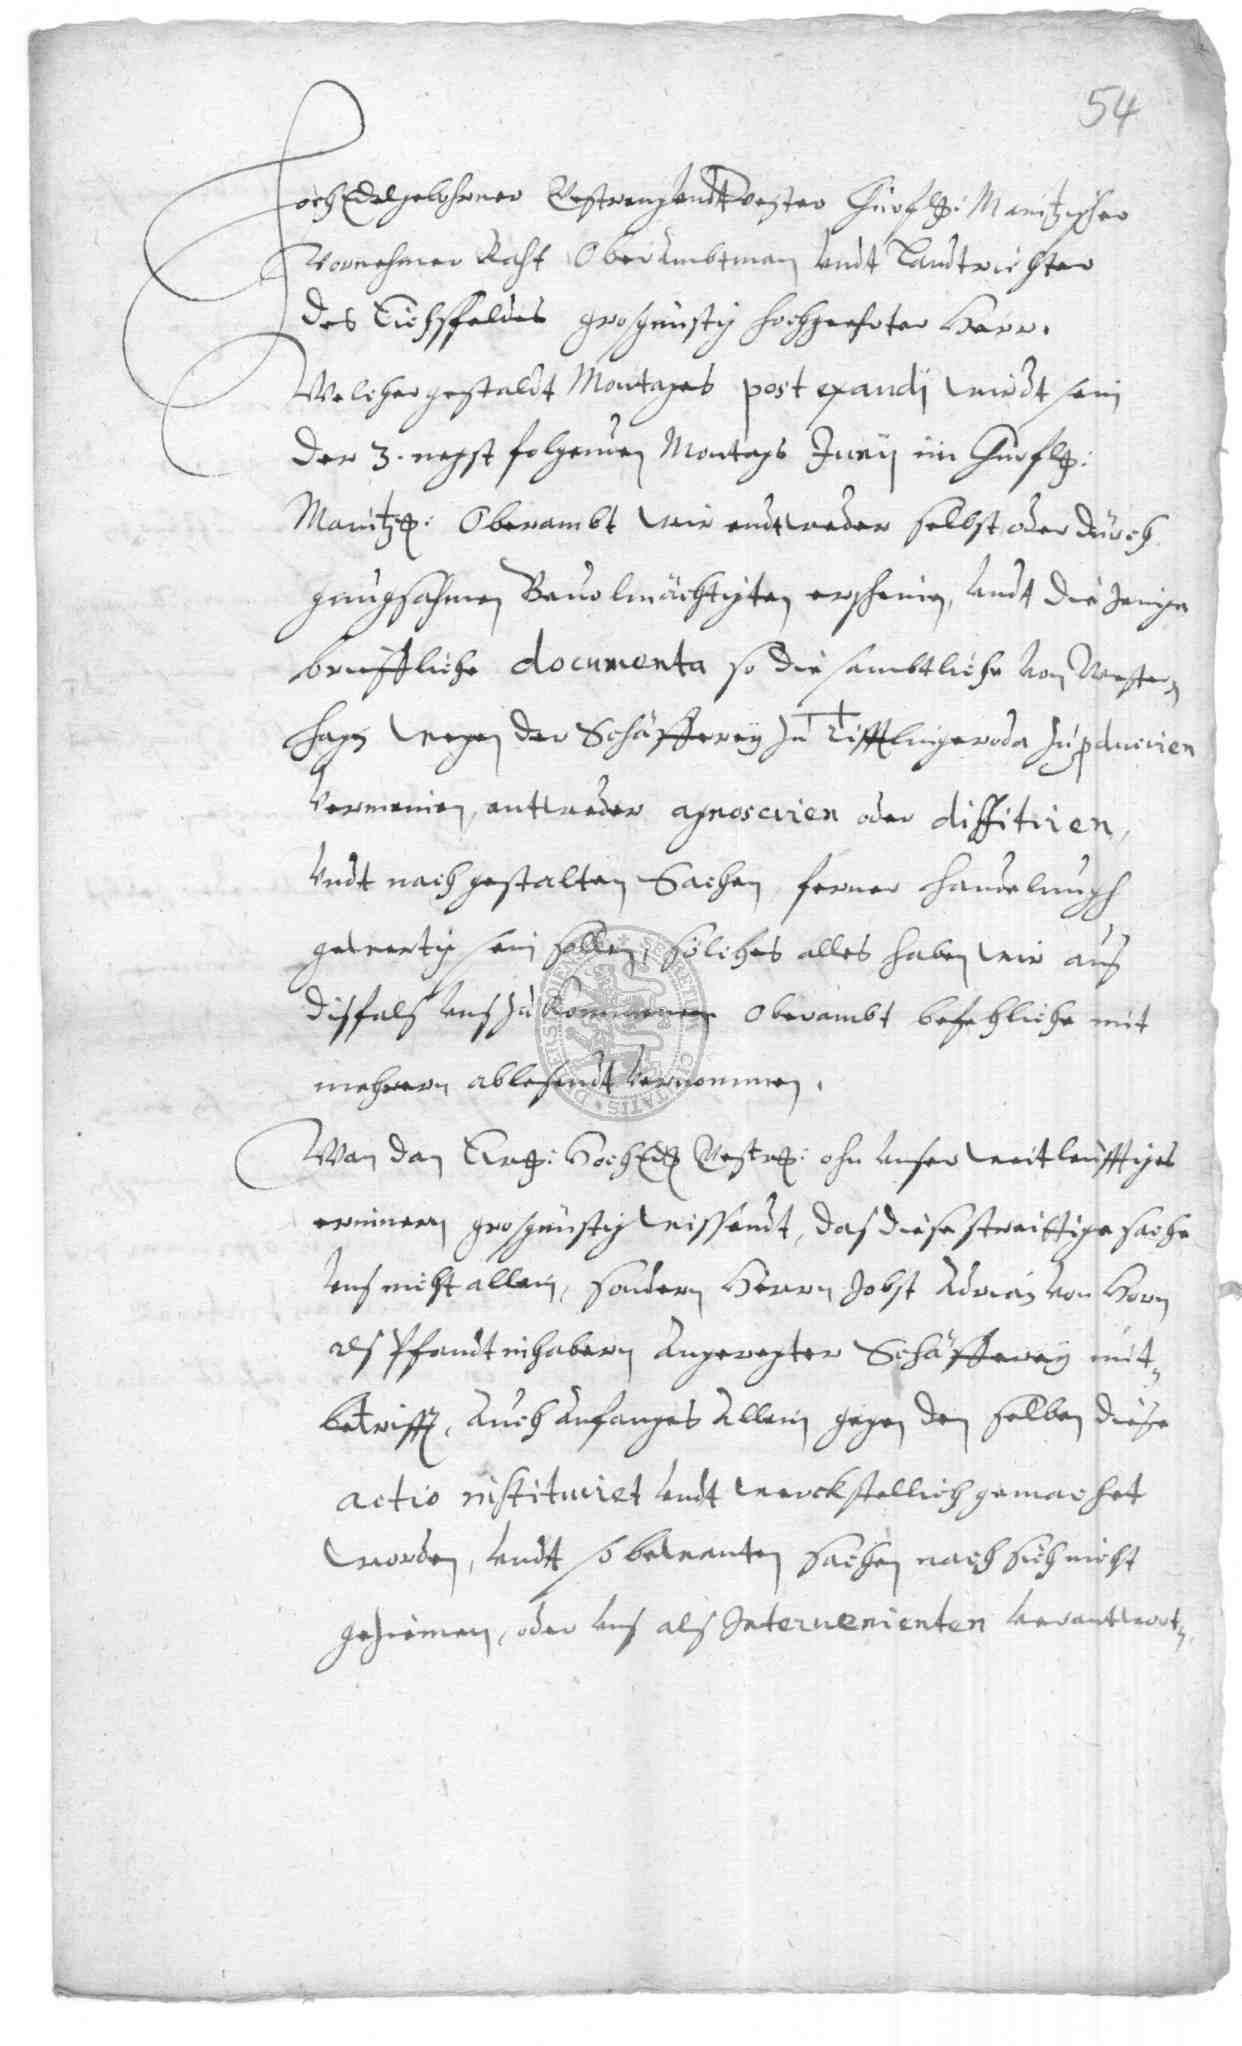 54
HochEdelgebohrner Gestreng undt Vester Churfl: Maintzischer
Vornehmer Raht OberAmbtman undt Landtrichter
des Eichsfeldes großgünstig hochgeehrter Herr.
Welcher gestaldt Montages post exaudi wirdt sein
der 3. negst folgenden Montags Junij im Churfl:
Maintz: Oberambt wir endtweder selbst oder durch
gnugsahmen Bevolmächtigten erscheinen, undt die jenige
briffliche documenta so die sambtliche von Wester-
hagen wegen der Schäfferey zu Tifftlingeroda zu pducirien
vermeinen, entweder agnoscirien oder diffitiren,
undt nach gestalten Sachen ferner handelungh
gewertig sein sollen, solches alles haben wir aus
disfals uns zu kommenen Oberambt befehliche mit
mehrern ablesendt vernommen.
Wan dan Ewg: HochEdl Gestrg: ohn unser weitleufftiges
erinnern großgünstig wissendt, das diese streittige sache
uns nicht allein, sondern Herrn Jobst Adrian von Horn
als Pfandtinhabern angeregter Schäfferey mit-
betrifft, auch anfanges allein gegen den selben diese
actio instituiret undt werckstellich gemachet
worden, undt so bewanten sachen nach sich nicht
geziemen, oder uns als Intervenienten verantwort-
DIEISENSIS SERENITATIS